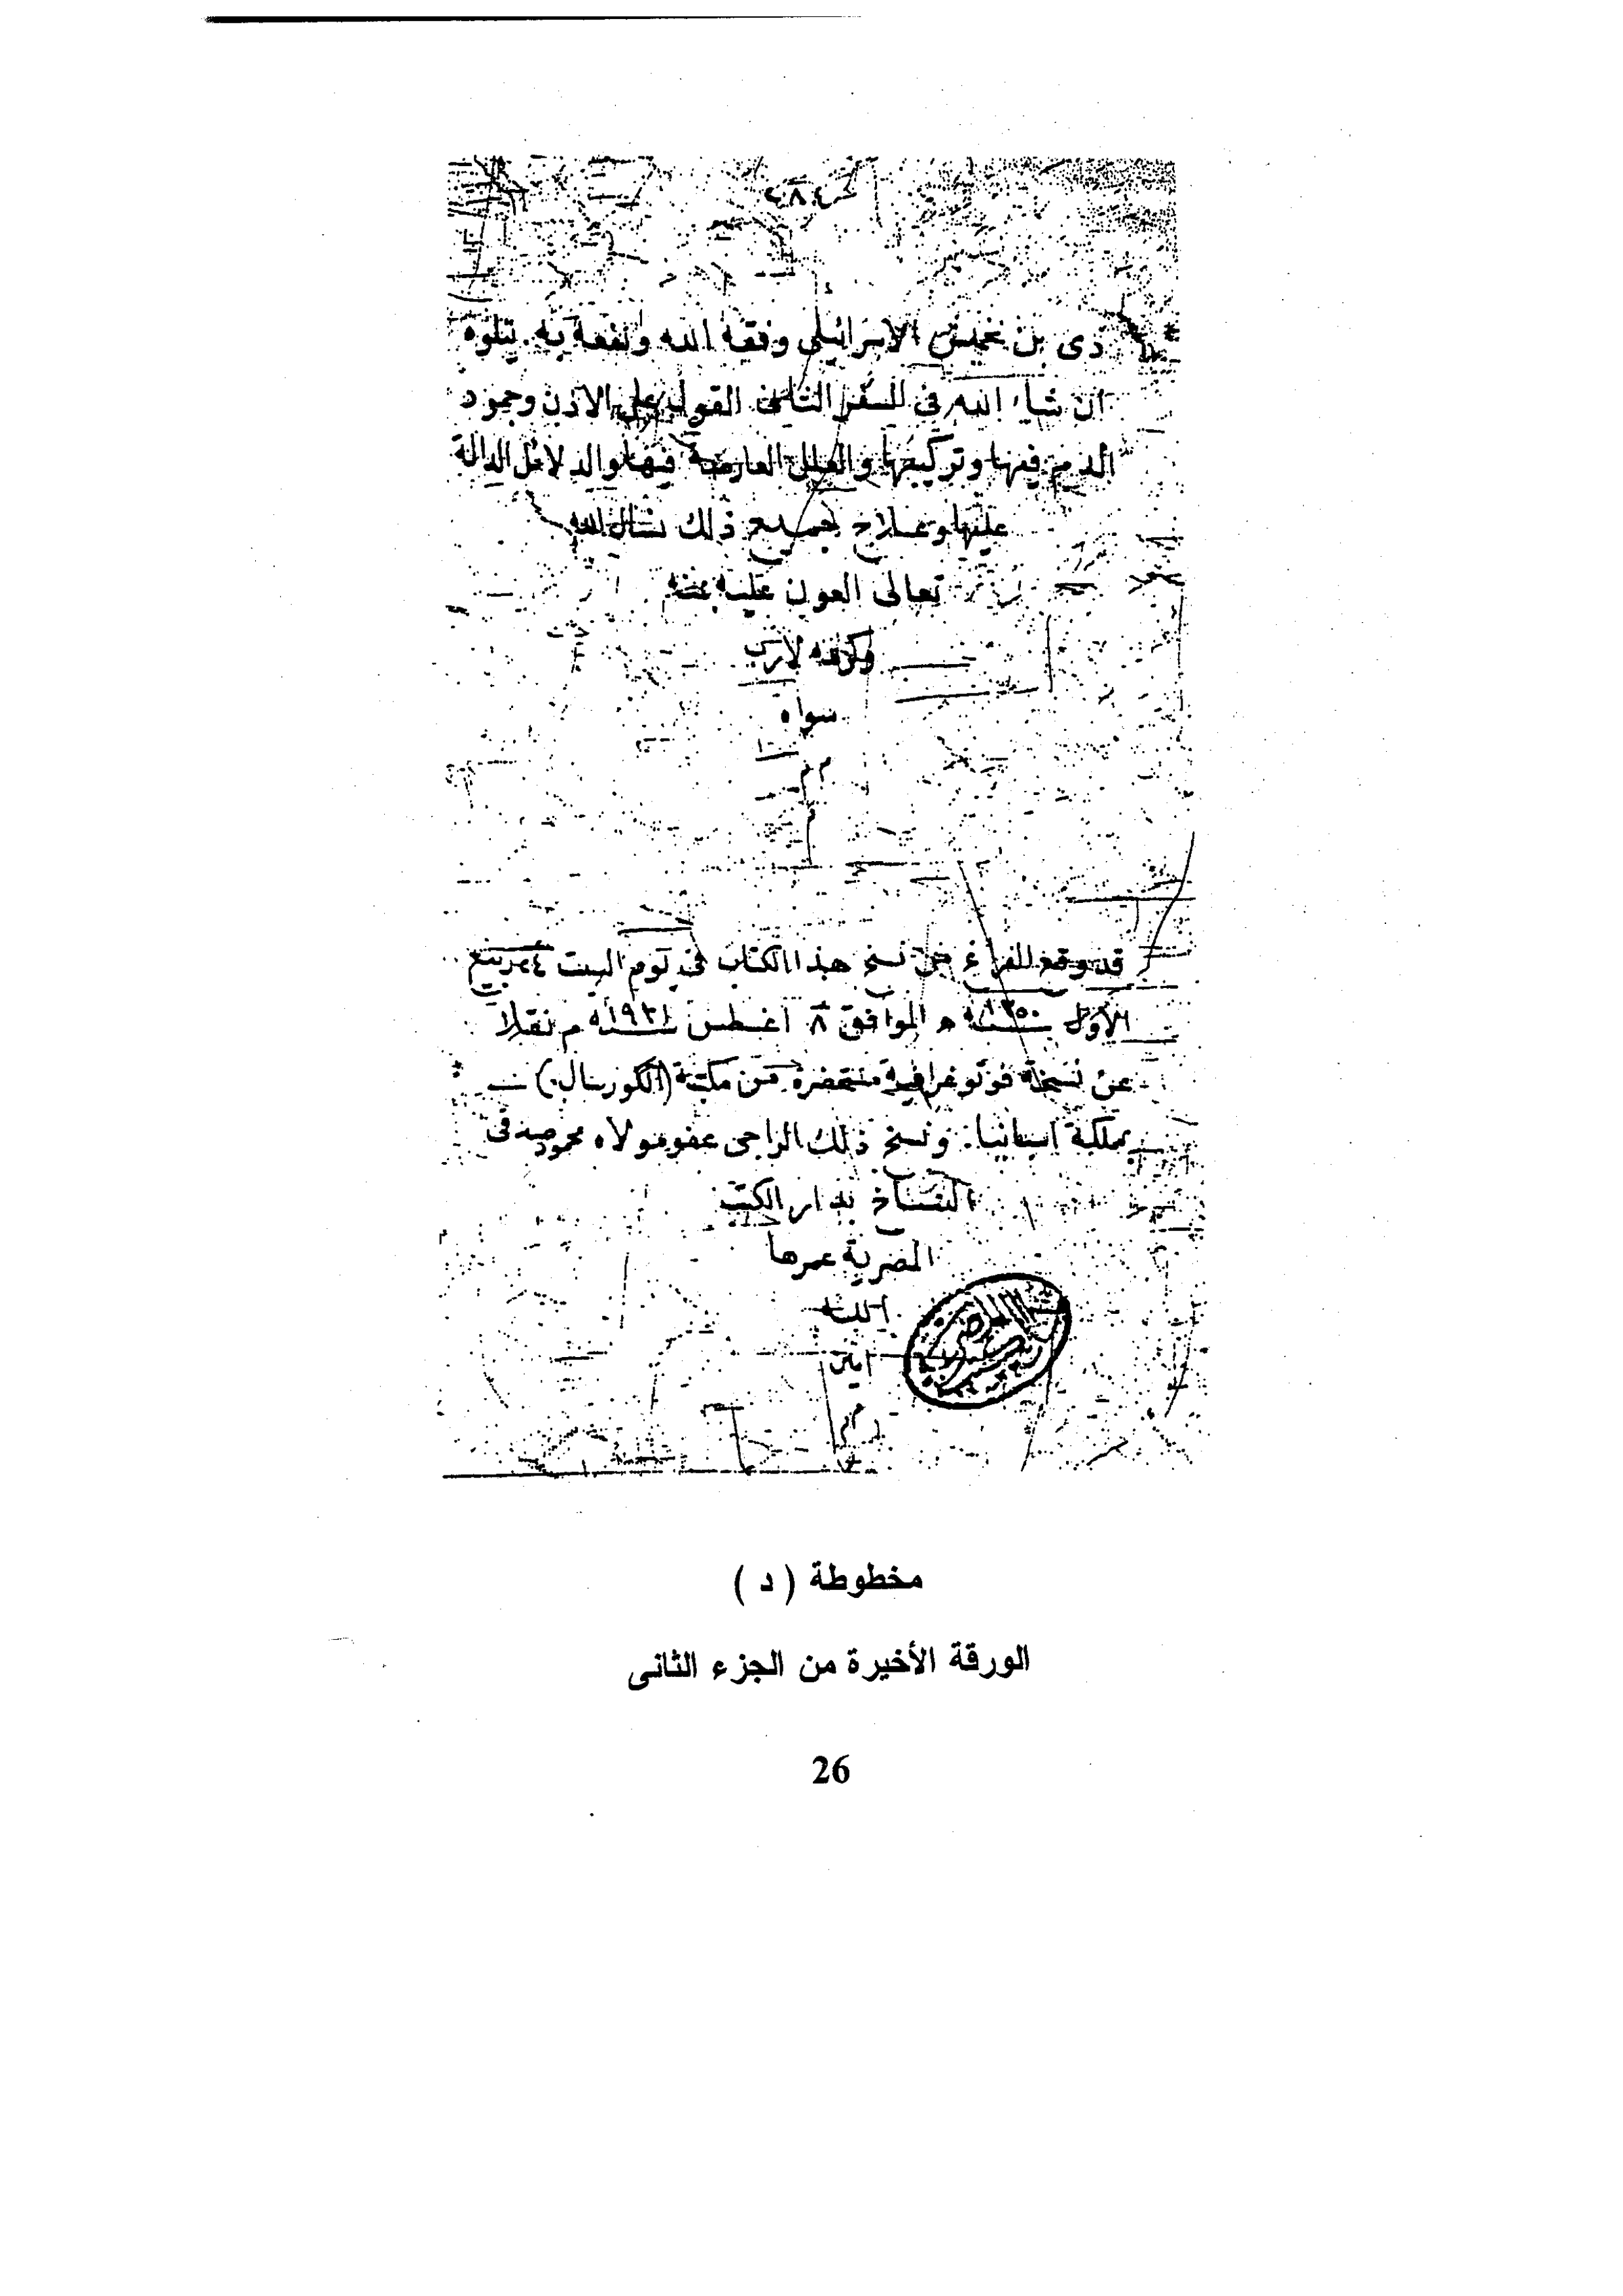 ـ ٤٨٤ ـ
دى بن نخميش الاسرائيلى وفقه الله ونفعه به. يتلوه
ان شاء الله فى السفر الثانى القول على الاذن وجمود
الدم فيها وتركيبها والعلل العارضة فيها والدلائل الدالة
عليها وعلاج جميع ذلك نسأل الله
تعالى العون عليه بمنه
وكرمه لا رب
سواه
م م
م
قد وقع الفراغ من نسخ هذا الكتاب فى يوم السبت ٢٤ ربيع
الأول سنة ١٣٥٠ ه الموافق ٨ أغسطس سنة ١٩٣١ م نقلا
عن نسخة فوتوغرافية مستحضرة من مكتبة (الكوريال)
بمملكة اسبانيا. ونسخ ذلك الراجى عفو مولاه محمود صدقى
النساخ بدار الكتب
المصرية عمرها
الله
امين
مخطوطة ( د )
الورقة الأخيرة من الجزء الثانى
26